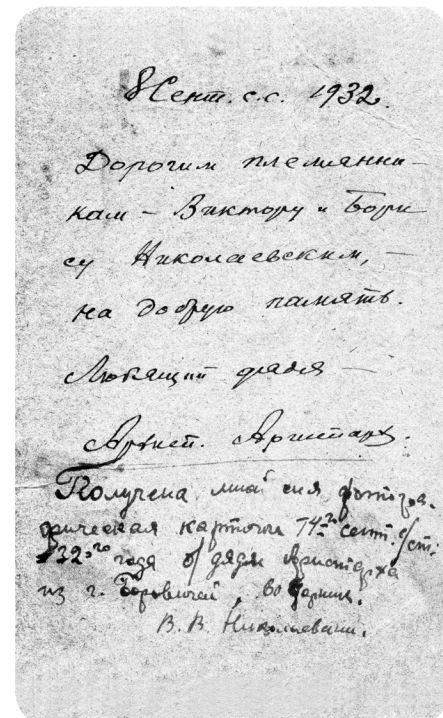 8 Сент. с.с. 1932.
Дорогим племянни-
кам – Виктору и Бори
су Николаевским, –
на добрую память.
Любящий дядя –
Архиеп. Аристарх.
Получена мной сия фотогра-
фическая карточка 14го сент. с/ст.
932го года от дяди Аристарха
из г. Боровичей, во вторник.
В. В. Николаевский.